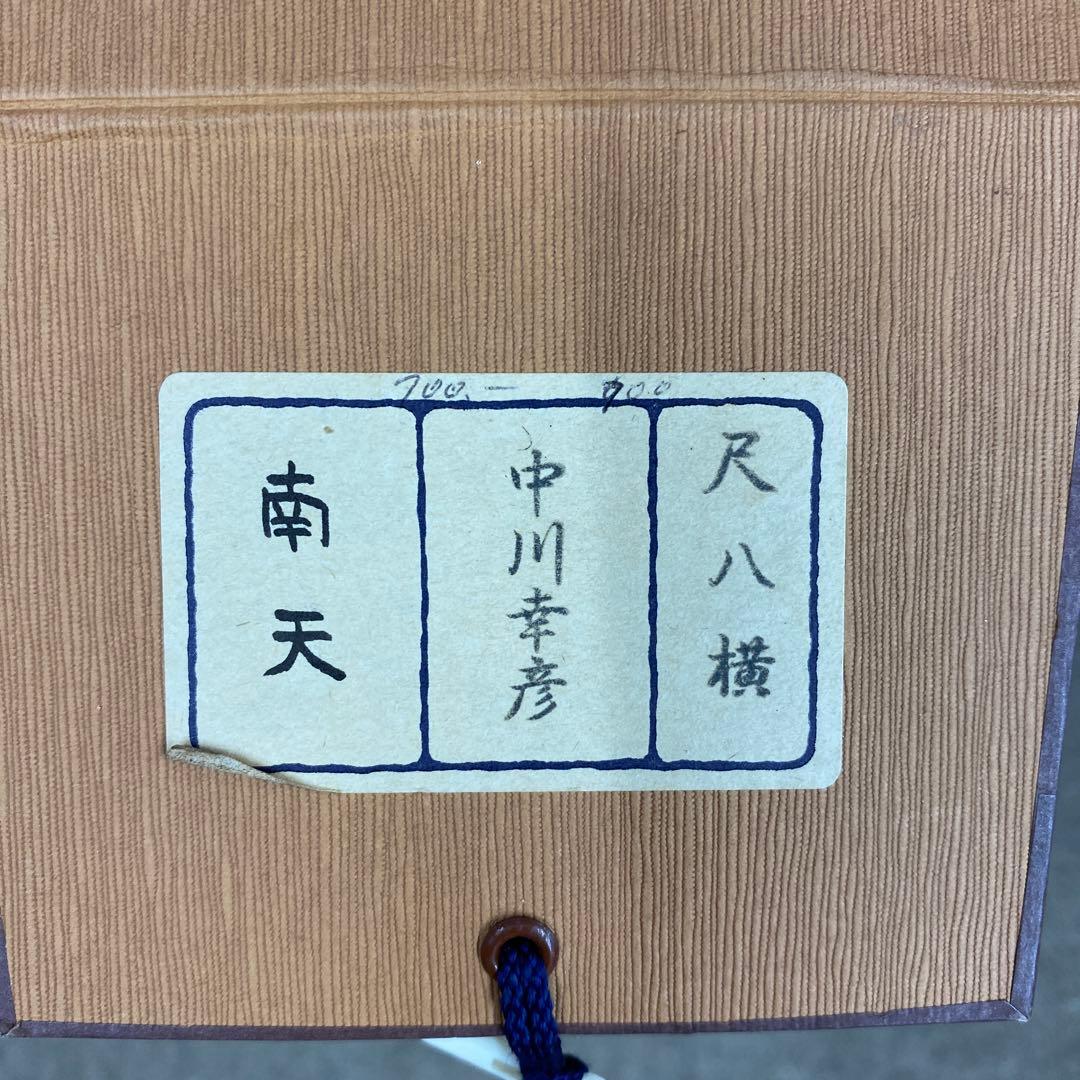 700.—
700
尺八横
中川幸彦
南天